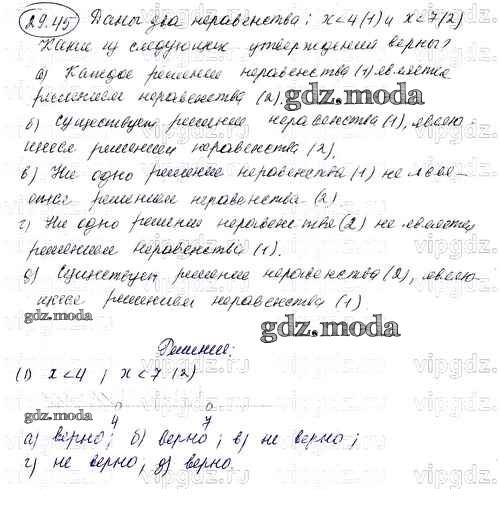 29.45 Даны два неравенства: x<4 (1) и x<7 (2)
Какие из следующих утверждений верны?
а) Каждое решение неравенства (1) является
решением неравенства (2).
gdz.moda
б) Существует решение неравенства (1), являю-
щееся решением неравенства (2).
в) Ни одно решение неравенства (1) не явля-
ется решением неравенства (2).
г) Ни одно решение неравенства (2) не является
решением неравенства (1).
д) Существует решение неравенства (2), являю-
щееся решением неравенства (1).
gdz.moda
gdz.moda
Решение:
(1) x<4 ; x<7 (2)
gdz.moda
4 7
а) верно; б) верно; в) не верно;
г) не верно; д) верно